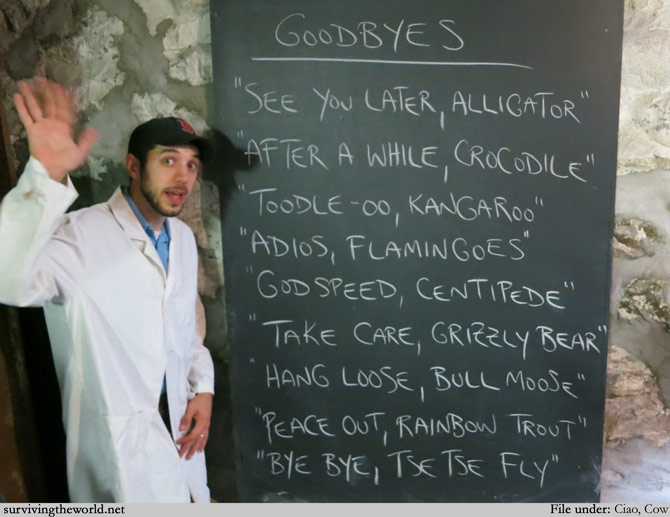 GOODBYES
"SEE YOU LATER, ALLIGATOR"
"AFTER A WHILE, CROCODILE"
"TOODLE-OO, KANGAROO"
"ADIOS, FLAMINGOES"
"GODSPEED, CENTIPEDE"
"TAKE CARE, GRIZZLY BEAR"
"HANG LOOSE, BULL MOOSE"
"PEACE OUT, RAINBOW TROUT"
"BYE BYE, TSE TSE FLY"
survivingtheworld.net
File under: Ciao, Cow